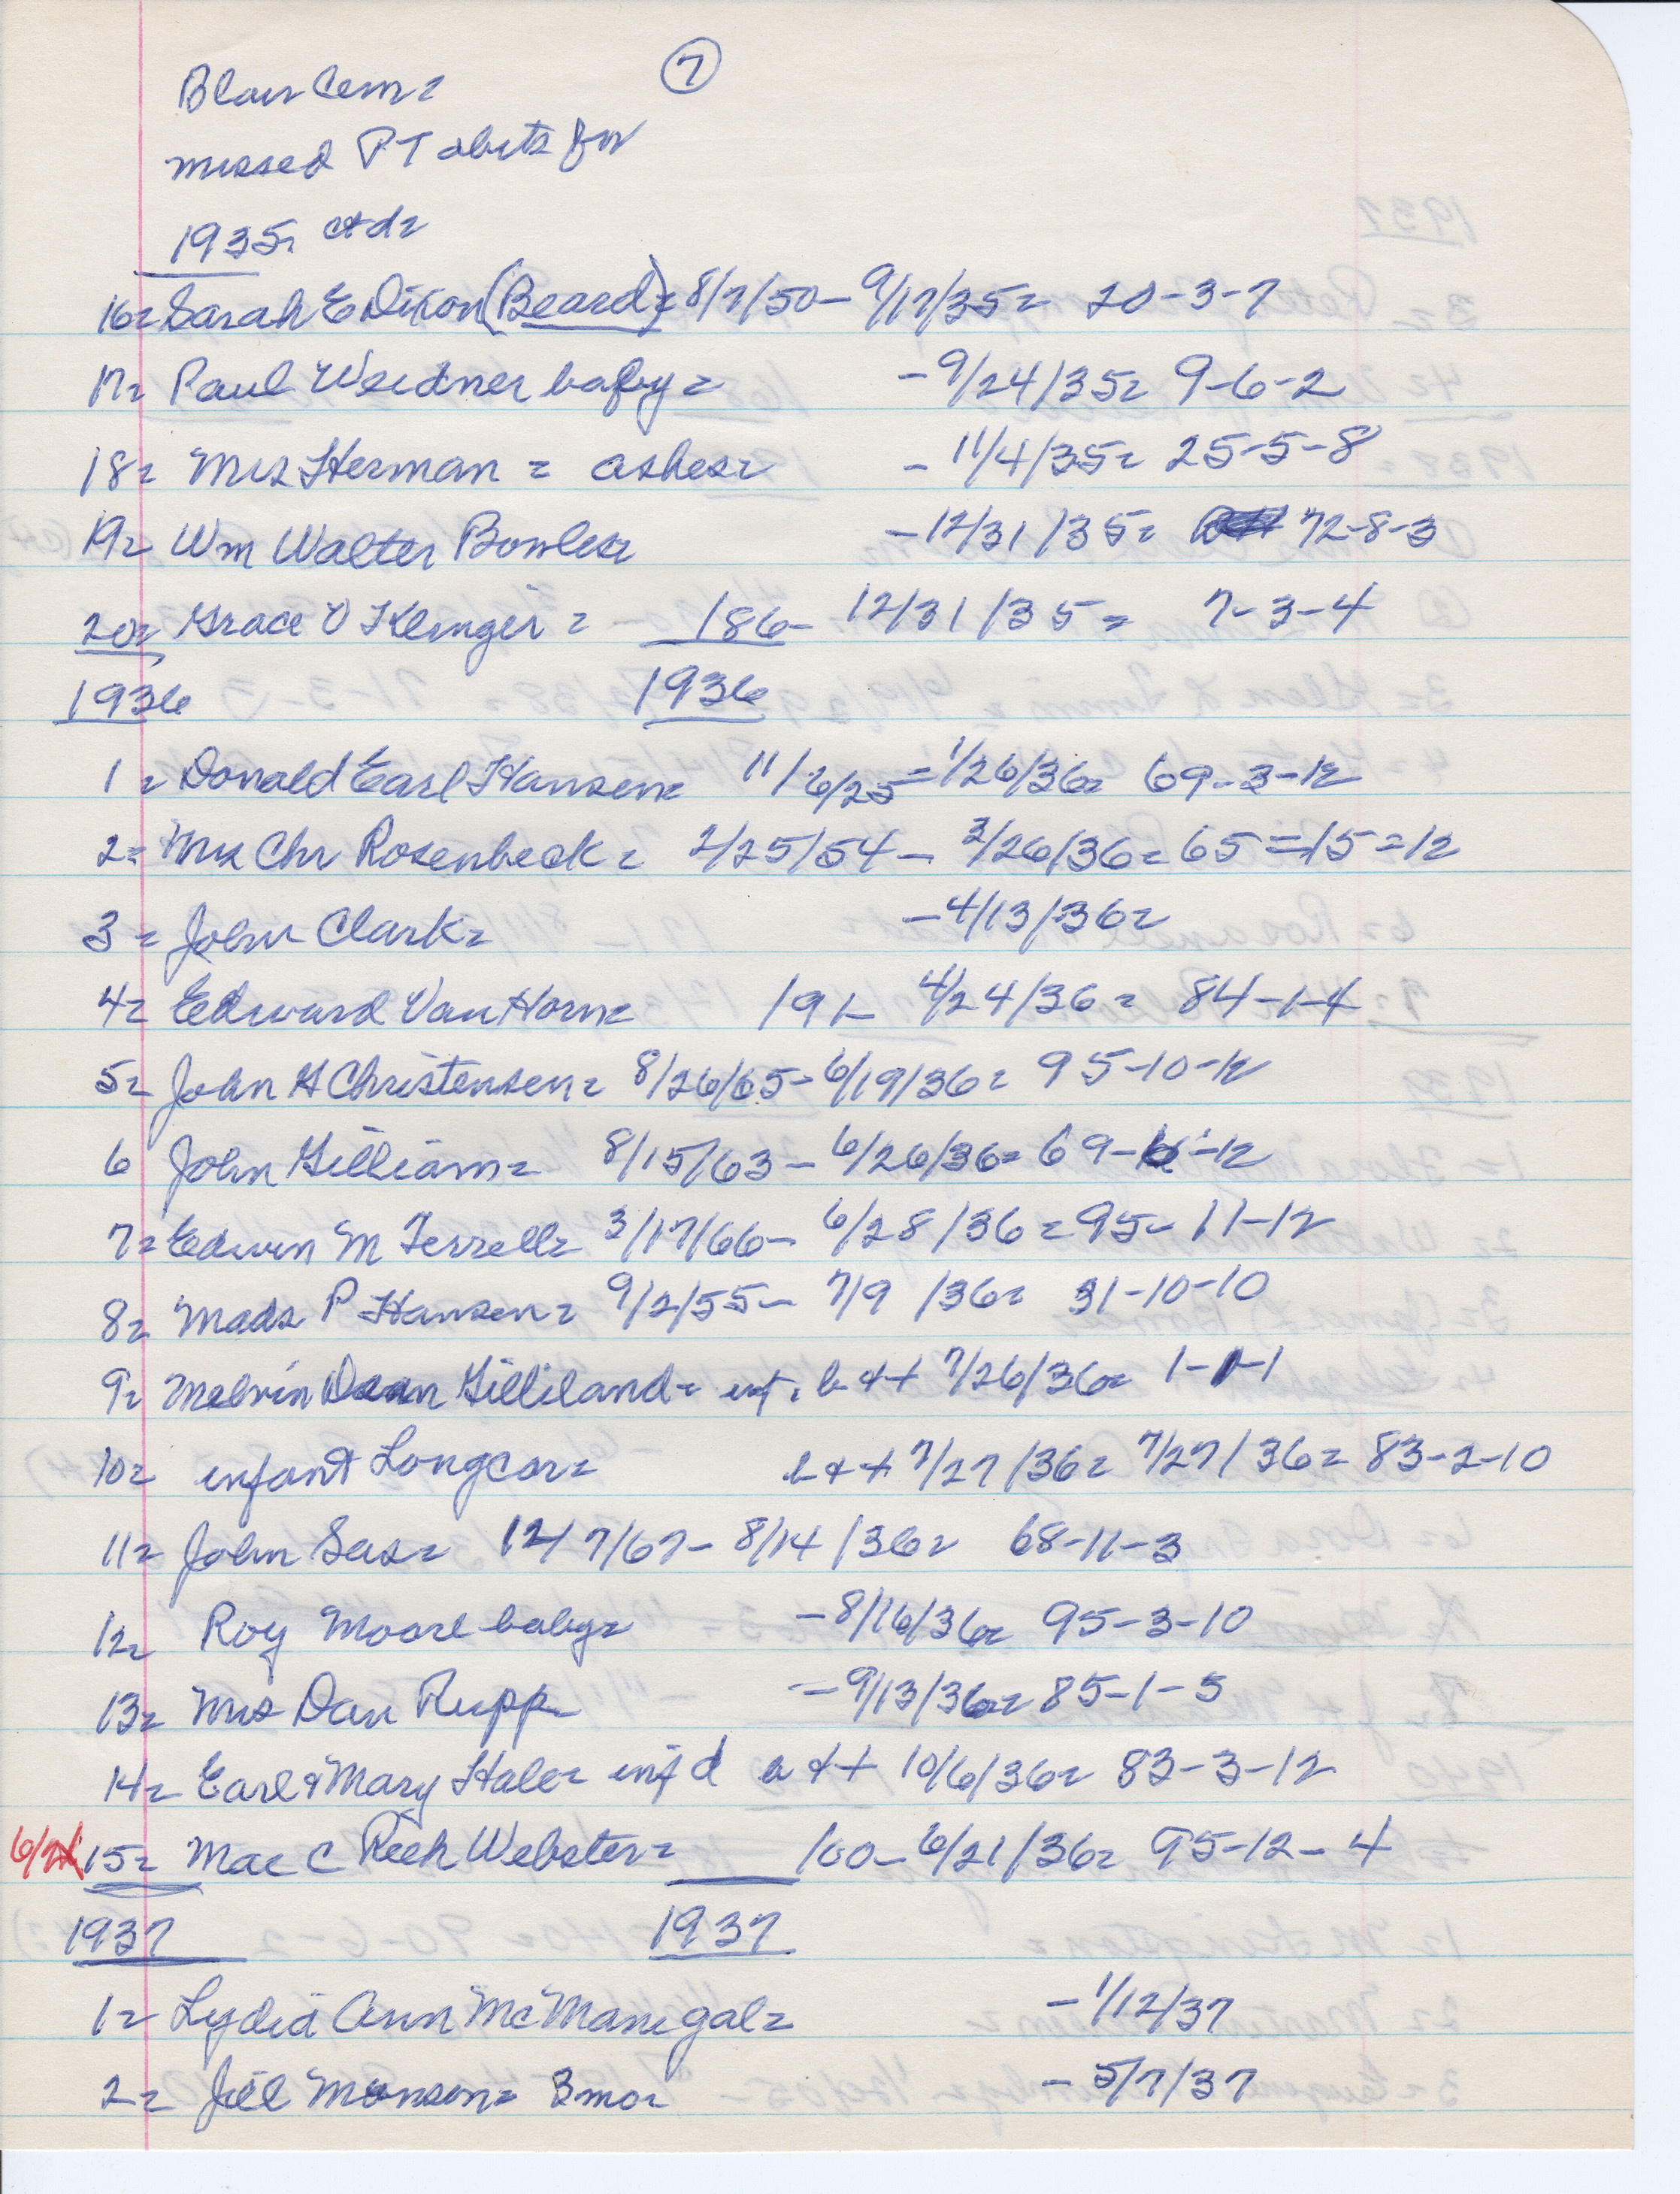 7
Blair Cem=
missed PT obits for
1935= ctd=
16= Sarah E Dixon (Beard)= 8/7/50- 9/17/35= 20-3-7
17= Paul Weidner baby= -9/24/35= 9-6-2
18= Mrs Herman = ashes= -11/4/35= 25-5-8
19= Wm Walter Bowles= -12/31/35= 72-8-3
20= Grace V Klinger = 186- 12/31/35= 7-3-4
1936 1936
1= Donald Earl Hansen= 11/6/25=1/26/36= 69-3-12
2= Mrs Chr Rosenbeck= 2/25/54- 3/26/36= 65=15=12
3= John Clark= -4/13/36=
4= Edward Van Horn= 191- 4/24/36= 84-1-4
5= John H Christensen= 8/26/65- 6/19/36= 95-10-12
6 John Gilliam= 8/15/63- 6/26/36= 69- -12
7= Edwin M Ferrell= 3/17/66- 6/28/36= 95- 11-12
8= Mads P Hansen= 9/2/55- 7/9/36= 31-10-10
9= Melvin Dean Gilliland= inf. b & + 7/26/36= 1-1-1
10= infant Longcor= b & + 7/27/36= 7/27/36= 83-2-10
11= John Sas= 12/7/67- 8/14/36= 68-11-3
12= Roy Moore baby= -8/16/36= 95-3-10
13= Mrs Dan Rupp= -9/13/36= 85-1-5
14= Earl & Mary Hale= inf d b & + 10/6/36= 83-3-12
15= Mae C Webster= 100- 6/21/36= 95-12-4
1937 1937
1= Lydia Ann McManigal= -1/12/37
2= Jill Monson= 3mo= -5/7/37